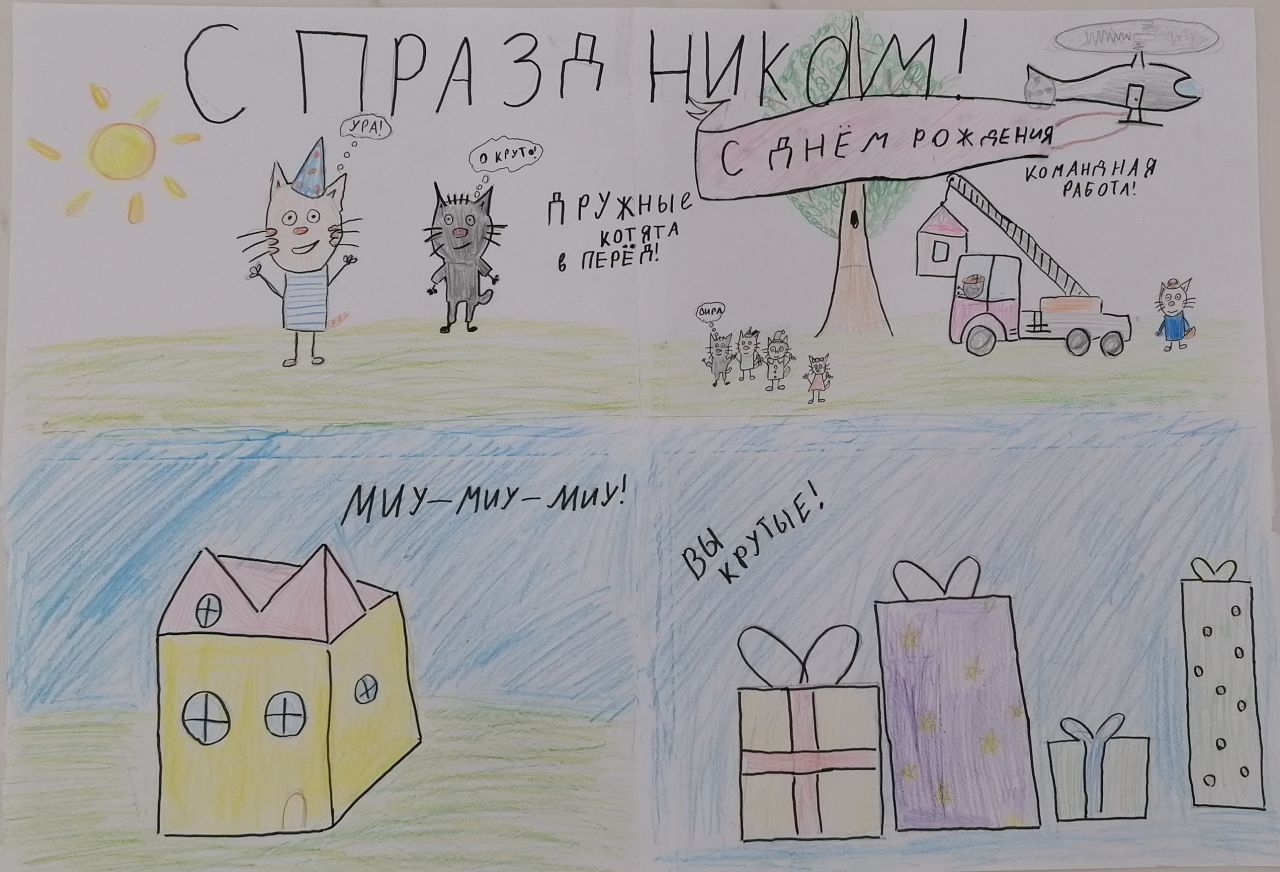 С ПРАЗДНИКОМ!
УРА!
О КРУТО!
ДРУЖНЫЕ
КОТЯТА
В ПЕРЁД!
С ДНЁМ РОЖДЕНИЯ
КОМАНДНАЯ
РАБОТА!
ВИРА
МИУ-МИУ-МИУ!
ВЫ
КРУТЫЕ!